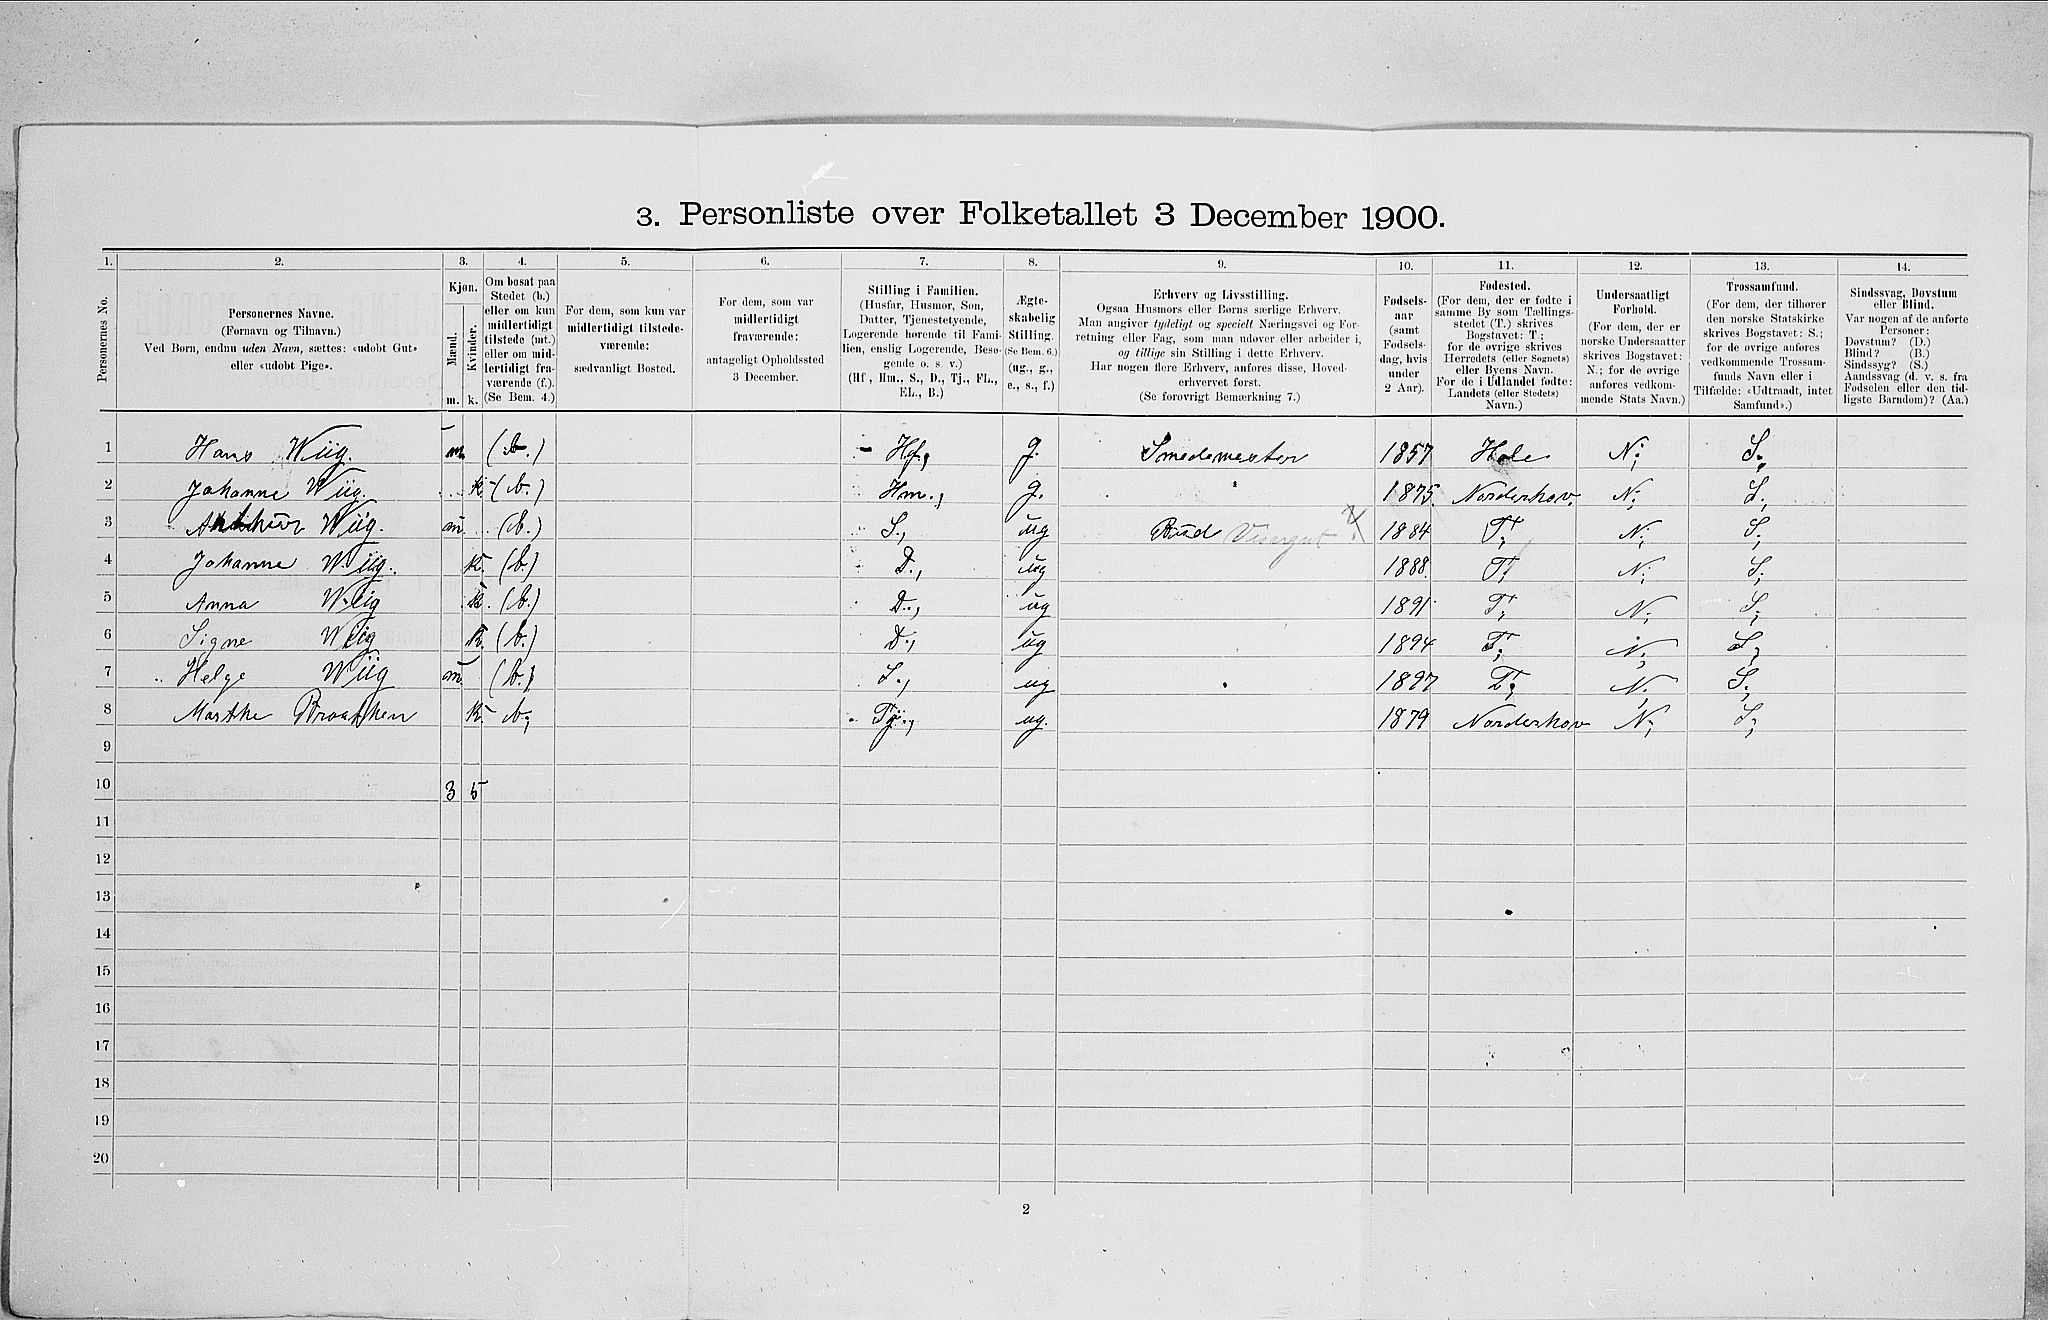 3. Personliste over Folketallet 3 December 1900.
1. 2. 3. 4. 5. 6. 7. 8. 9. 10. 11. 12. 13. 14.
Personernes No.
Personernes Navne.
(Fornavn og Tilnavn.)
Ved Børn, endnu uden Navn, sættes: «udøbt Gut»
eller «udøbt Pige».
Kjøn.
Mænd.
Kvinder.
m. k.
Om bosat paa
Stedet (b.)
eller om kun
midlertidigt
tilstede (mt.)
eller om mid-
lertidigt fra-
værende (f.).
(Se Bem. 4.)
For dem, som kun var
midlertidigt tilstede-
værende:
sædvanligt Bosted.
For dem, som var
midlertidigt
fraværende:
antageligt Opholdssted
3 December.
Stilling i Familien.
(Husfar, Husmor, Søn,
Datter, Tjenestetyende,
Logerende hørende til Fami-
lien, enslig Logerende, Besø-
gende o. s. v.)
(Hf, Hm., S., D., Tj., FL.,
EL., B.)
Ægte-
skabelig
Stilling.
(Se Bem. 6.)
(ug., g.,
e., s., f.)
Erhverv og Livsstilling.
Ogsaa Husmors eller Børns særlige Erhverv.
Man angiver tydeligt og specielt Næringsvei og For-
retning eller Fag, som man udøver eller arbeider i,
og tillige sin Stilling i dette Erhverv.
Har nogen flere Erhverv, anføres disse, Hoved-
erhvervet først.
(Se forøvrigt Bemærkning 7.)
Fødsels-
aar
(samt
Fødsels-
dag, hvis
under
2 Aar).
Fødested.
(For dem, der er fødte i
samme By som Tællings-
stedet (T.) skrives
Bogstavet: T.;
for de øvrige skrives
Herredets (eller Sognets)
eller Byens Navn.
For de i Udlandet fødte:
Landets (eller Stedets)
Navn.)
Undersaatligt
Forhold.
(For dem, der er
norske Undersaatter
skrives Bogstavet:
N.; for de øvrige
anføres vedkom-
mende Stats Navn.)
Trossamfund.
(For dem, der tilhører
den norske Statskirke
skrives Bogstavet: S.;
for de øvrige anføres
vedkommende Trossam-
funds Navn eller i
Tilfælde: «Udtraadt, intet
Samfund».)
Sindssvag, Døvstum
eller Blind.
Var nogen af de anførte
Personer:
Døvstum? (D.)
Blind? (B.)
Sindssyg? (S.)
Aandssvag (d. v. s. fra
Fødselen eller den tid-
ligste Barndom)? (Aa.)
1 Hans Wiig. m. (b.) Hf., g. Smedemester 1857 Hole N; S.,
2 Johanne Wiig. k (b.) Hm., g. " 1875. Norderhov. N; S;
3 Arthur Wiig. m. (b.) S., ug Bud Visergut 1884 T; N; S;
4 Johanne Wiig. k. (b.) D., ug 1888. T; N; S;
5 Anna Wiig k. (b.) D., ug 1891. T; N; S;
6 Signe Wiig k. (b.) D., ug 1894 T; N; S;
7 Helge Wiig m. (b.) S., ug 1897 T; N; S;
8 Marthe Braathen k. b; Tj., ug. 1879 Norderhov N; S;
9
10 3 5
11
12
13
14
15
16
17
18
19
20
2